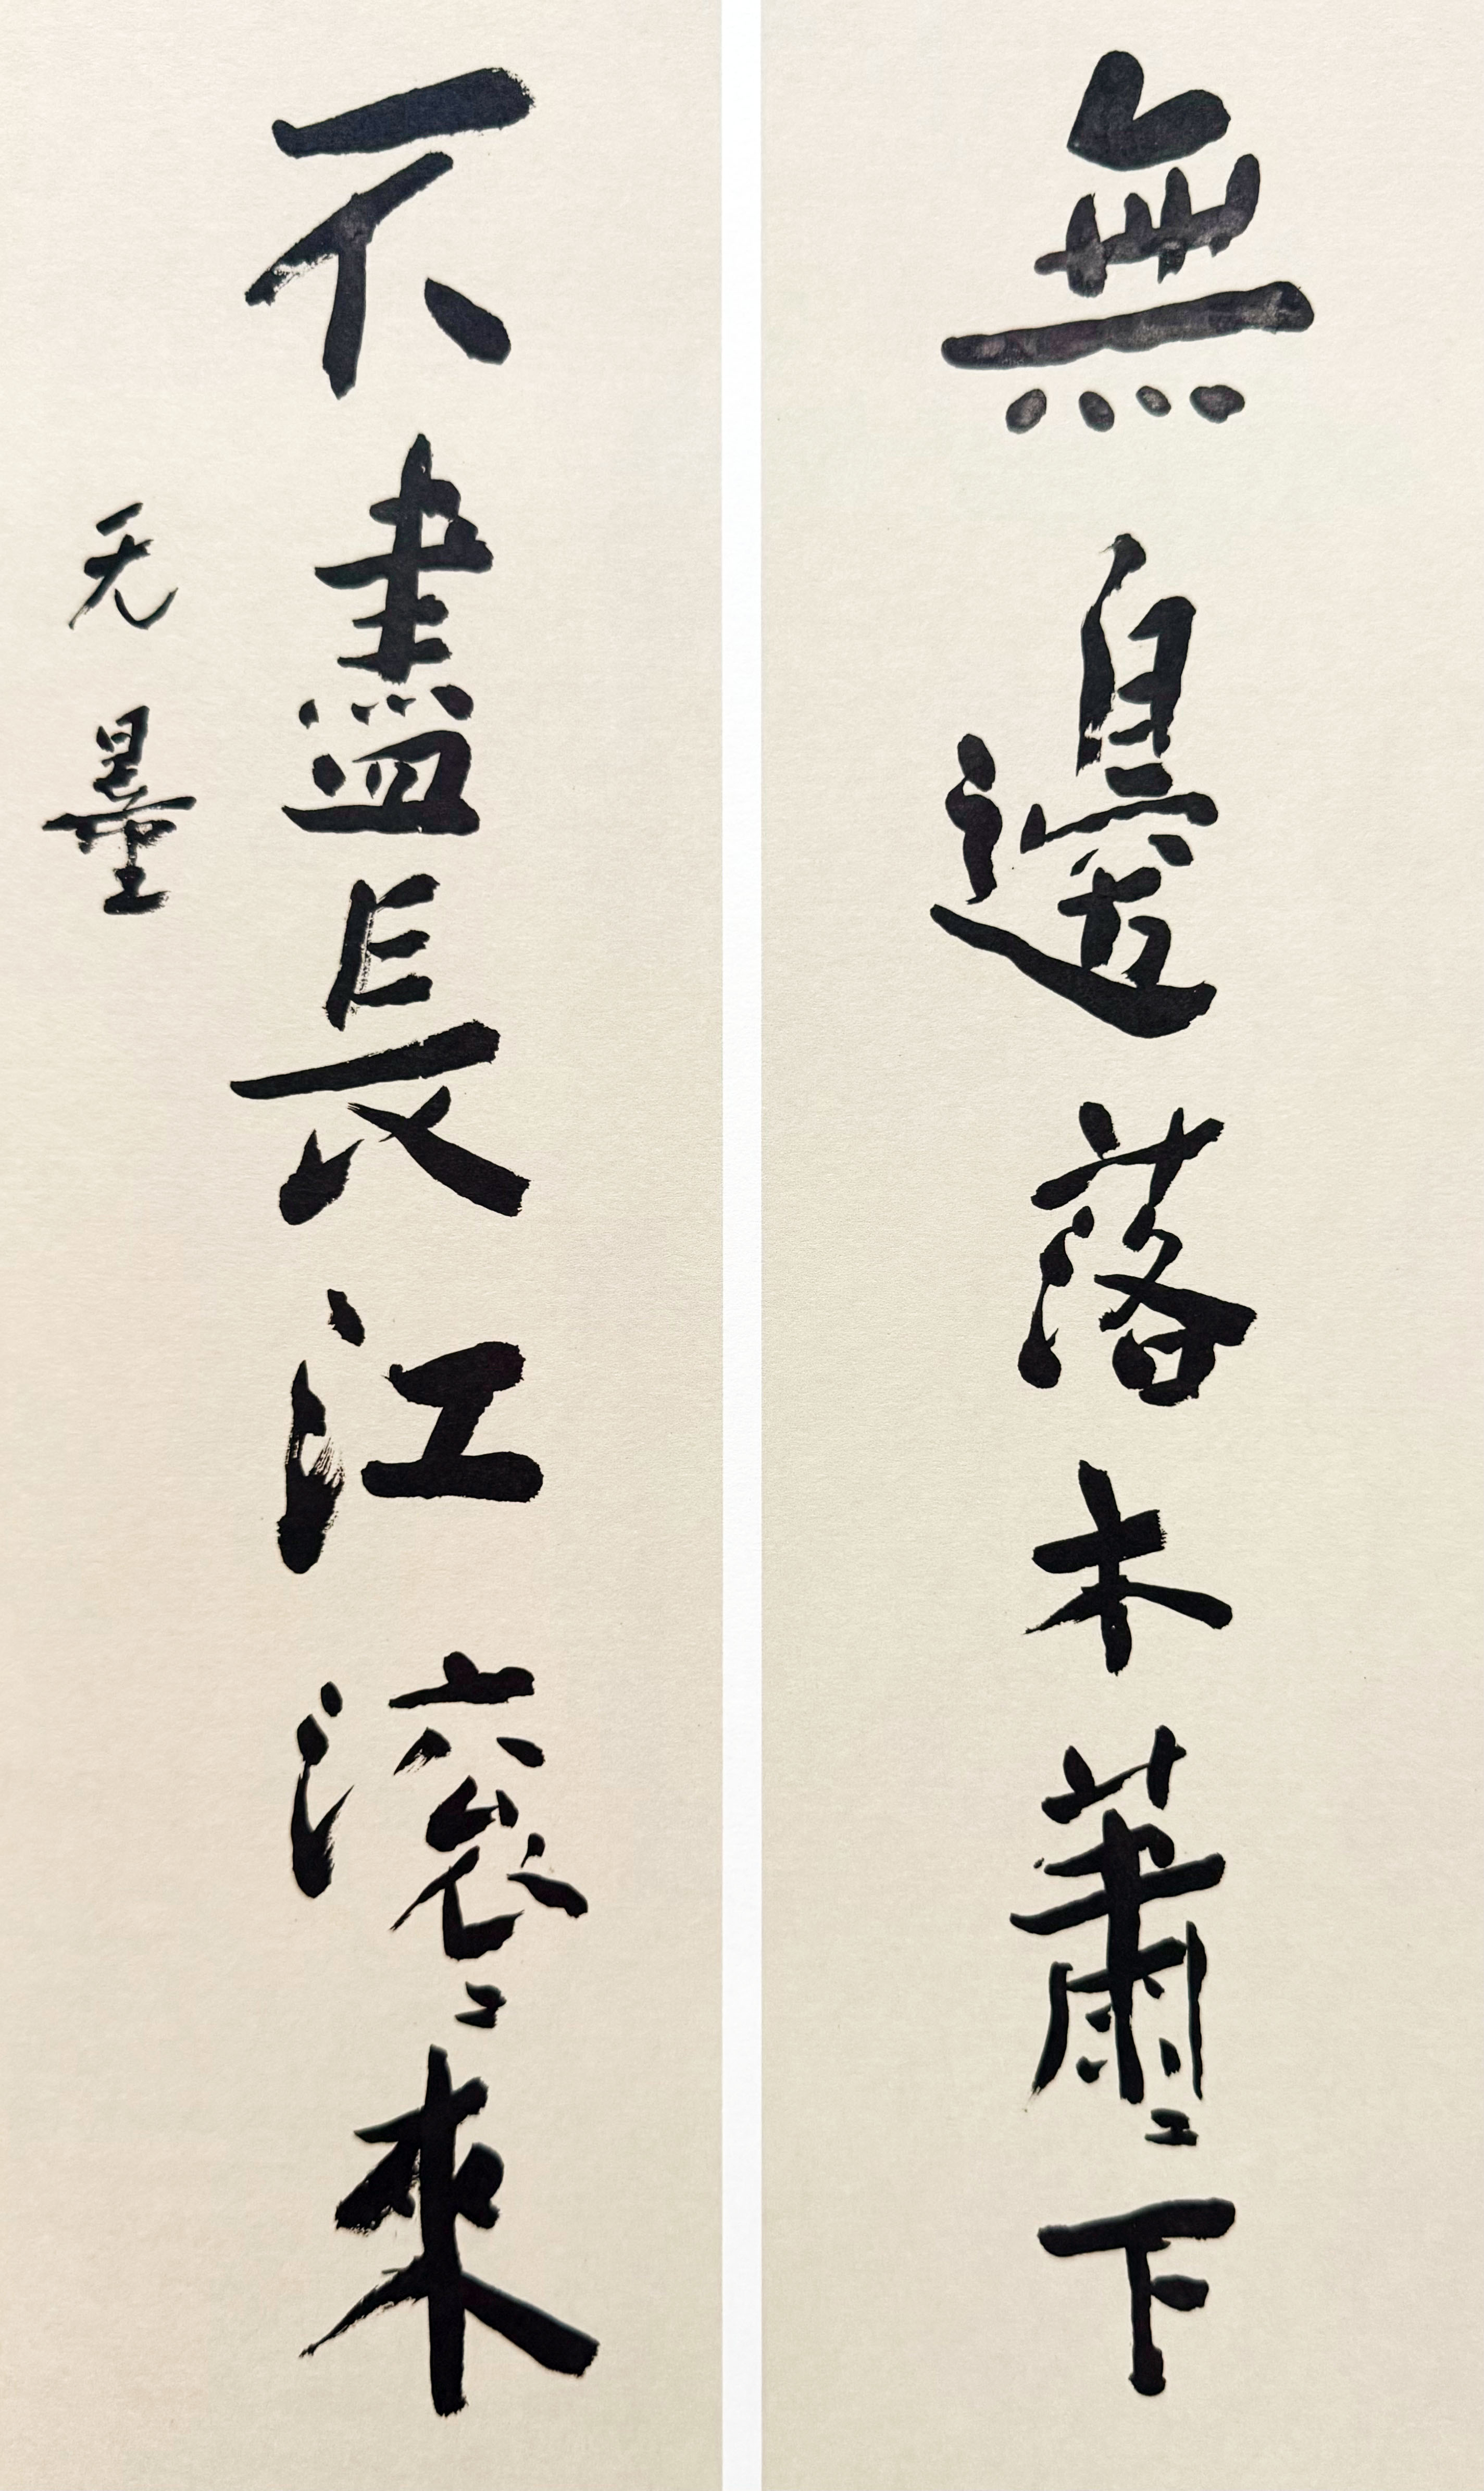 無邊落木蕭〻下
不盡長江滾〻來
无墨